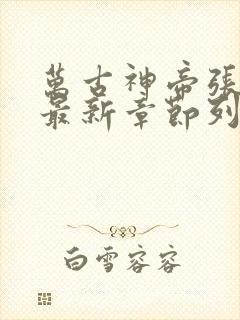 萬古神帝張
最新章節列
白雪容容